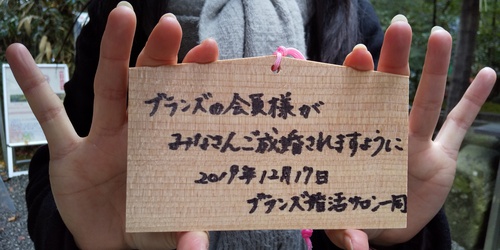 ブランズの会員様が
みなさんご成婚されますように
2019年12月17日
ブランズ婚活サロン一同